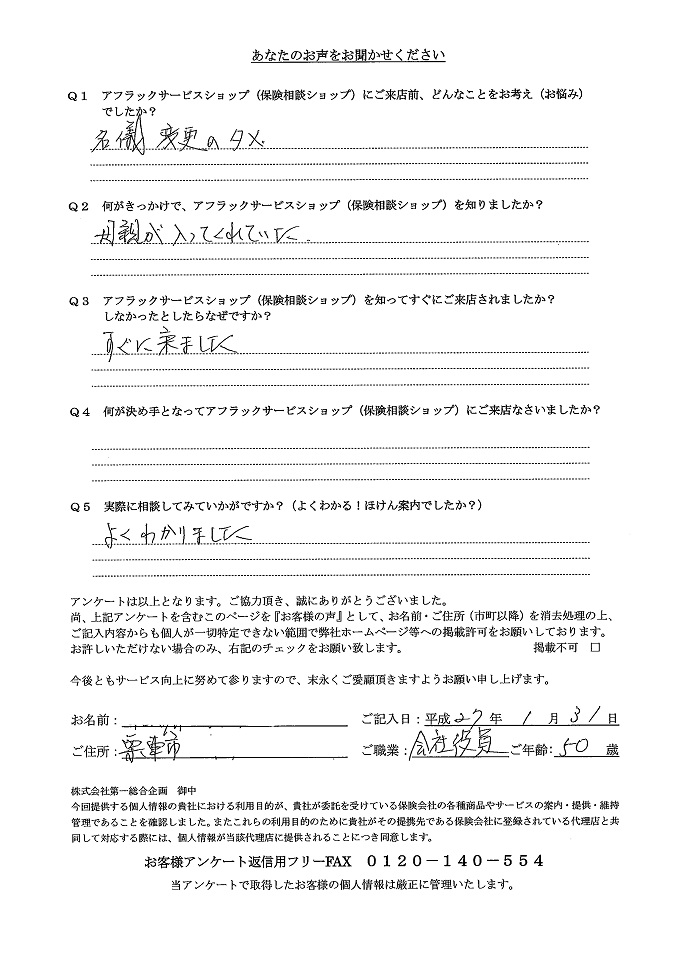 あなたのお声をお聞かせください
Q1 アフラックサービスショップ(保険相談ショップ)にご来店前、どんなことをお考え(お悩み)
でしたか?
名儀変更のタメ
Q2 何がきっかけで、アフラックサービスショップ(保険相談ショップ)を知りましたか?
母親が入ってくれていた.
Q3 アフラックサービスショップ(保険相談ショップ)を知ってすぐにご来店されましたか?
しなかったとしたらなぜですか?
すぐに来ました
Q4 何が決め手となってアフラックサービスショップ(保険相談ショップ)にご来店なさいましたか?
Q5 実際に相談してみていかがですか?(よくわかる!ほけん案内でしたか?)
よくわかりました
アンケートは以上となります。ご協力頂き、誠にありがとうございました。
尚、上記アンケートを含むこのページを『お客様の声』として、お名前・ご住所(市町以降)を消去処理の上、
ご記入内容からも個人が一切特定できない範囲で弊社ホームページ等への掲載許可をお願いしております。
お許しいただけない場合のみ、右記のチェックをお願い致します。 掲載不可 □
今後ともサービス向上に努めて参りますので、末永くご愛顧頂きますようお願い申し上げます。
お名前: ご記入日:平成27年1月31日
ご住所:栗東市 ご職業:会社役員 ご年齢:50歳
株式会社第一総合企画 御中
今回提供する個人情報の貴社における利用目的が、貴社が委託を受けている保険会社の各種商品やサービスの案内・提供・維持
管理であることを確認しました。またこれらの利用目的のために貴社がその提携先である保険会社に登録されている代理店と共
同して対応する際には、個人情報が当該代理店に提供されることにつき同意します。
お客様アンケート返信用フリーFAX 0120-140-554
当アンケートで取得したお客様の個人情報は厳正に管理いたします。